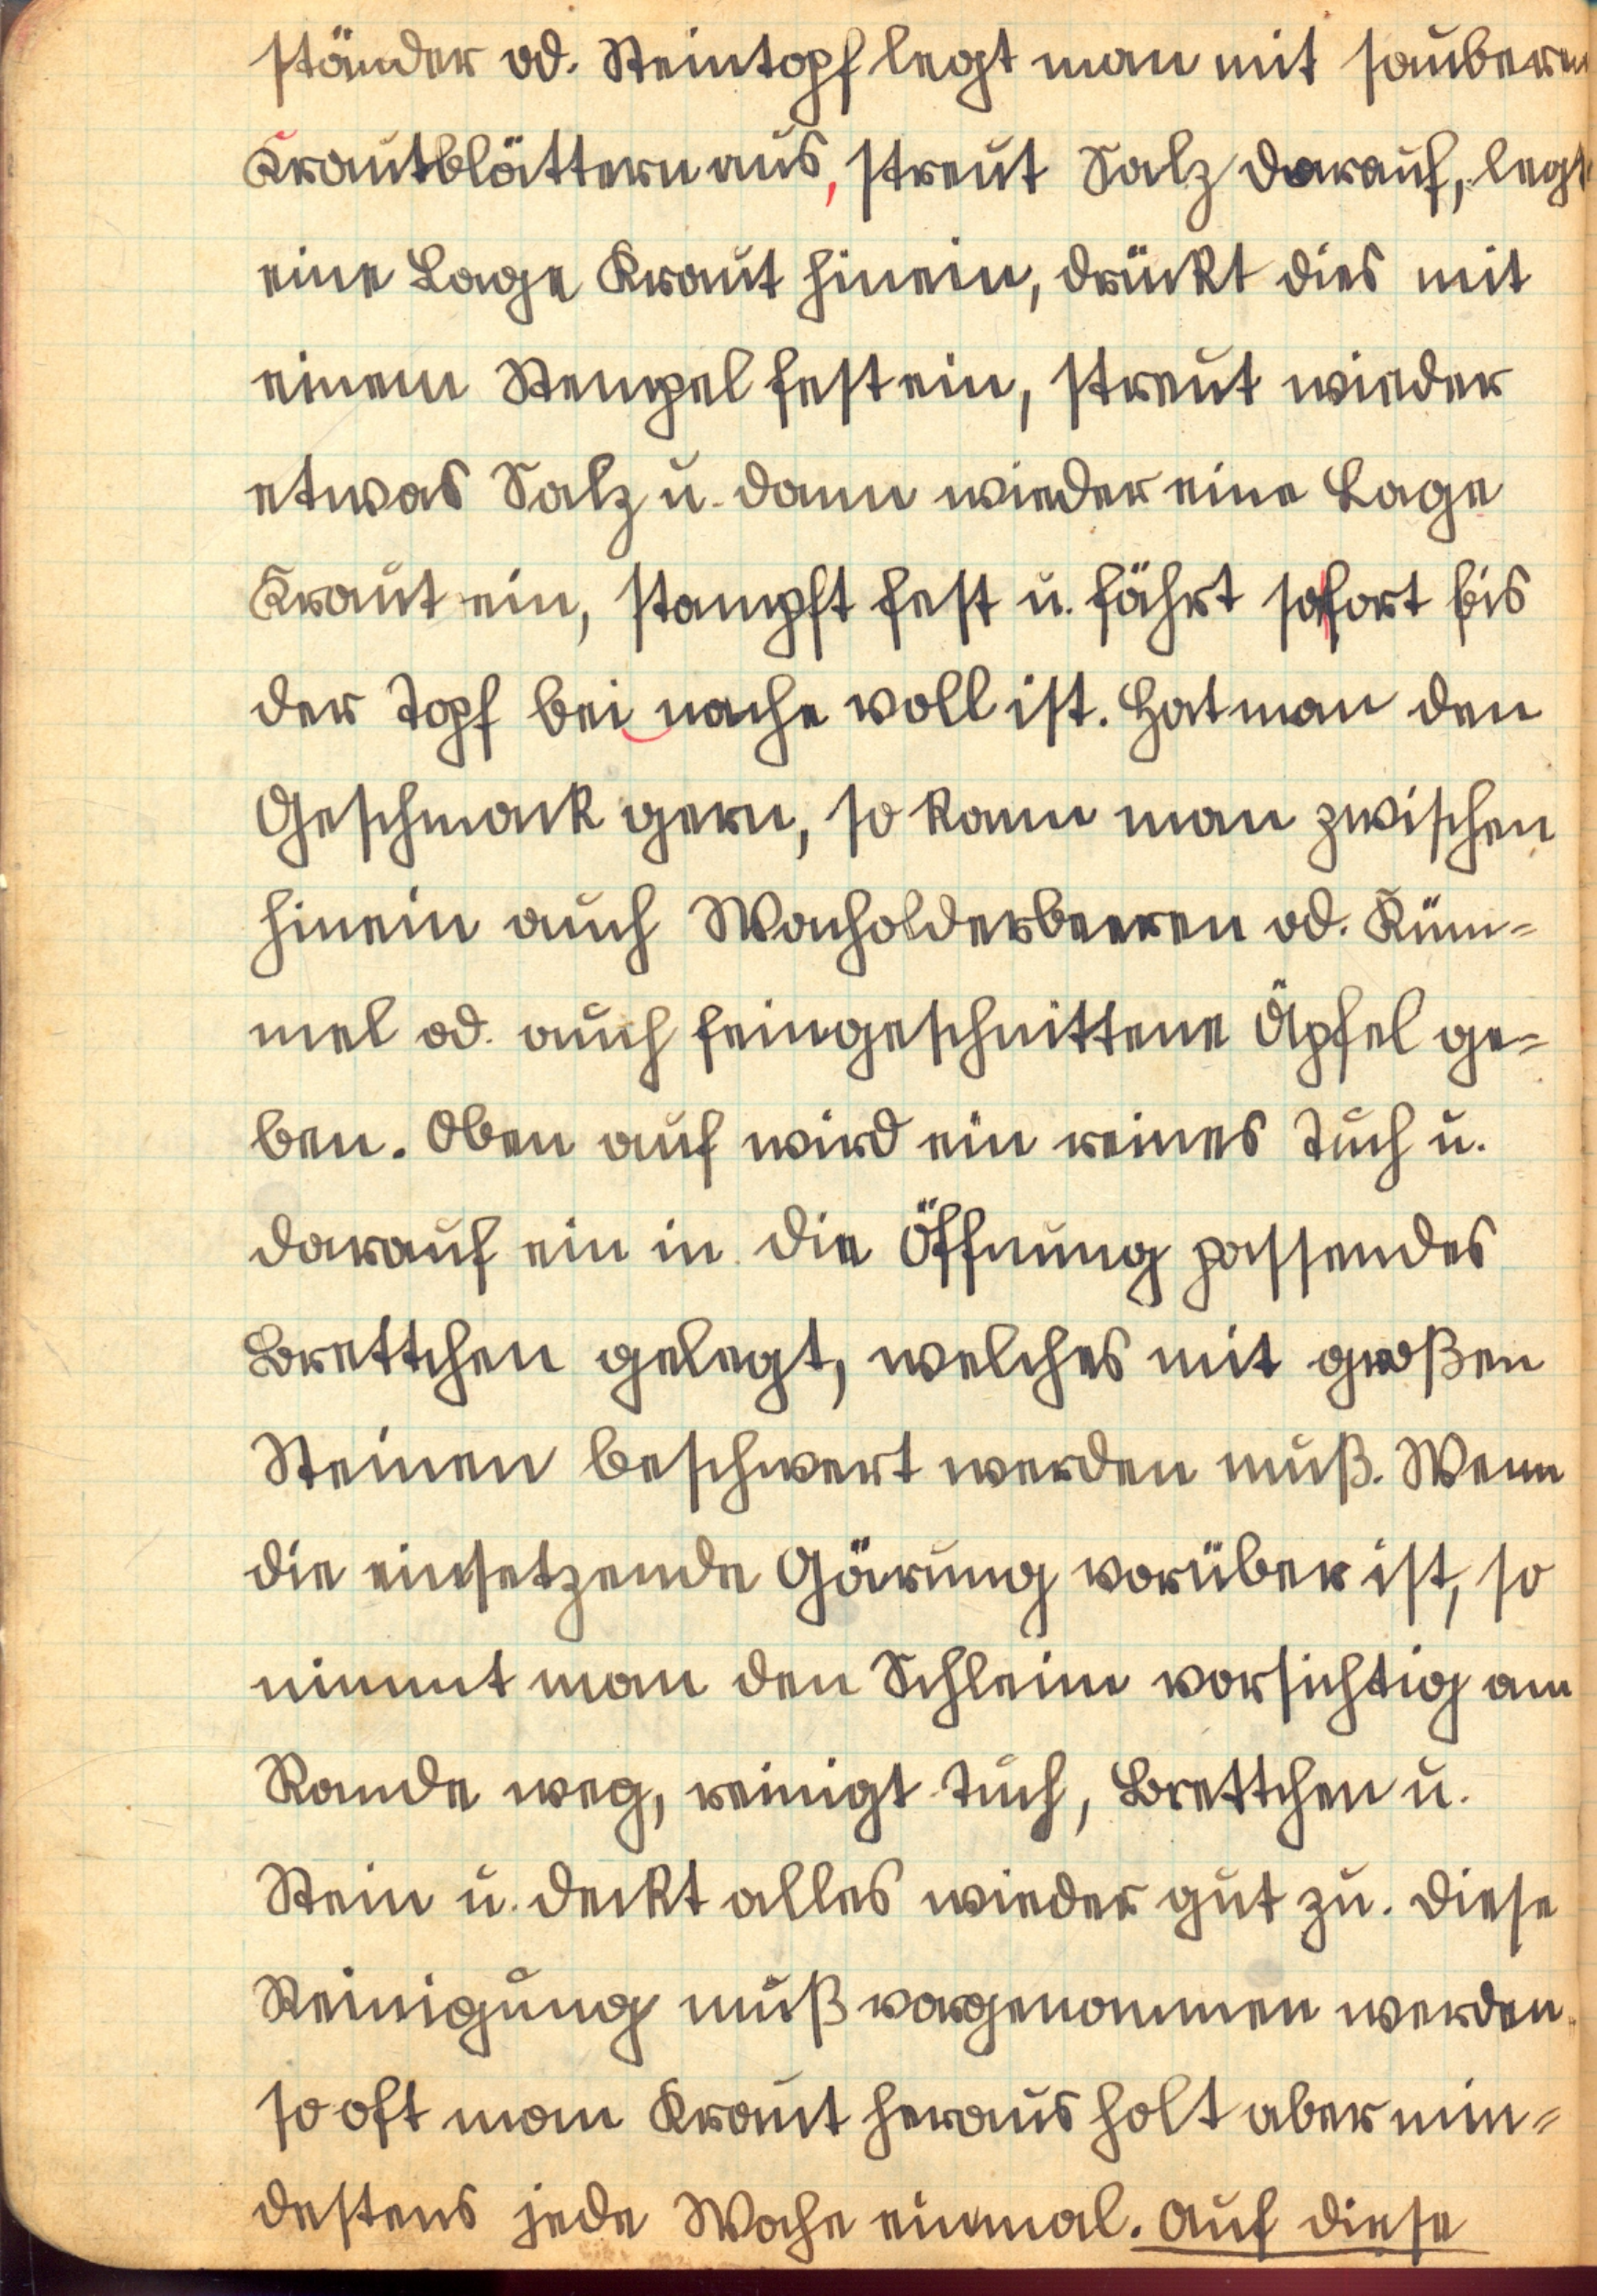 ständer od. Steintopf legt man mit saubern
Krautblättern aus, streut Salz darauf, legt
eine Lage Kraut hinein, drückt dies mit
einem Stempel fest ein, streut wieder
etwas Salz u. dann wieder eine Lage
Kraut ein, stampft fest u. fährt sofort bis
der Topf bei nache voll ist. Hat man den
Geschmack gern, so kann man zwischen
hinein auch Wacholderbeeren od. Küm=
mel od. auch feingeschnittene Äpfel ge=
ben. Oben auf wird ein reines Tuch u.
darauf ein in die Öffnung passendes
Brettchen gelegt, welches mit großen
Steinen beschwert werden muß. Wenn
die einsetzende Gärung vorüber ist, so
nimmt man den Schleim vorsichtig am
Rande weg, reinigt Tuch, Brettchen u.
Stein u. deckt alles wieder gut zu. Diese
Reinigung muß vorgenommen werden.
so oft man Kraut heraus holt aber min=
destens jede Woche einmal. Auf diese